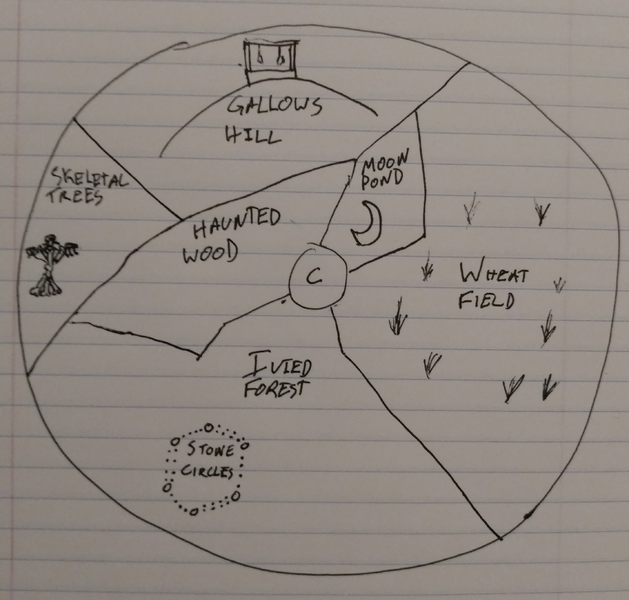 GALLOWS
HILL
SKELETAL
TREES
MOON
POND
HAUNTED
WOOD
C
WHEAT
FIELD
IVIED
FOREST
STONE
CIRCLES